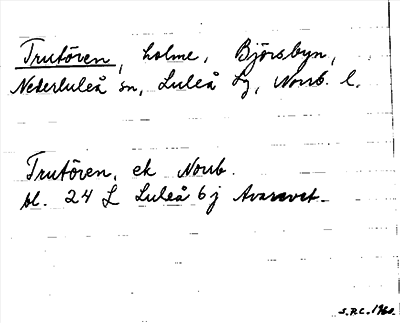 Trutören, holme, Björsbyn,
Nederluleå sn, Luleå lg, Norrb. l.
Trutören, ek Norrb.
bl. 24 L Luleå 6 j Avarevet
S.P.C. 1960.